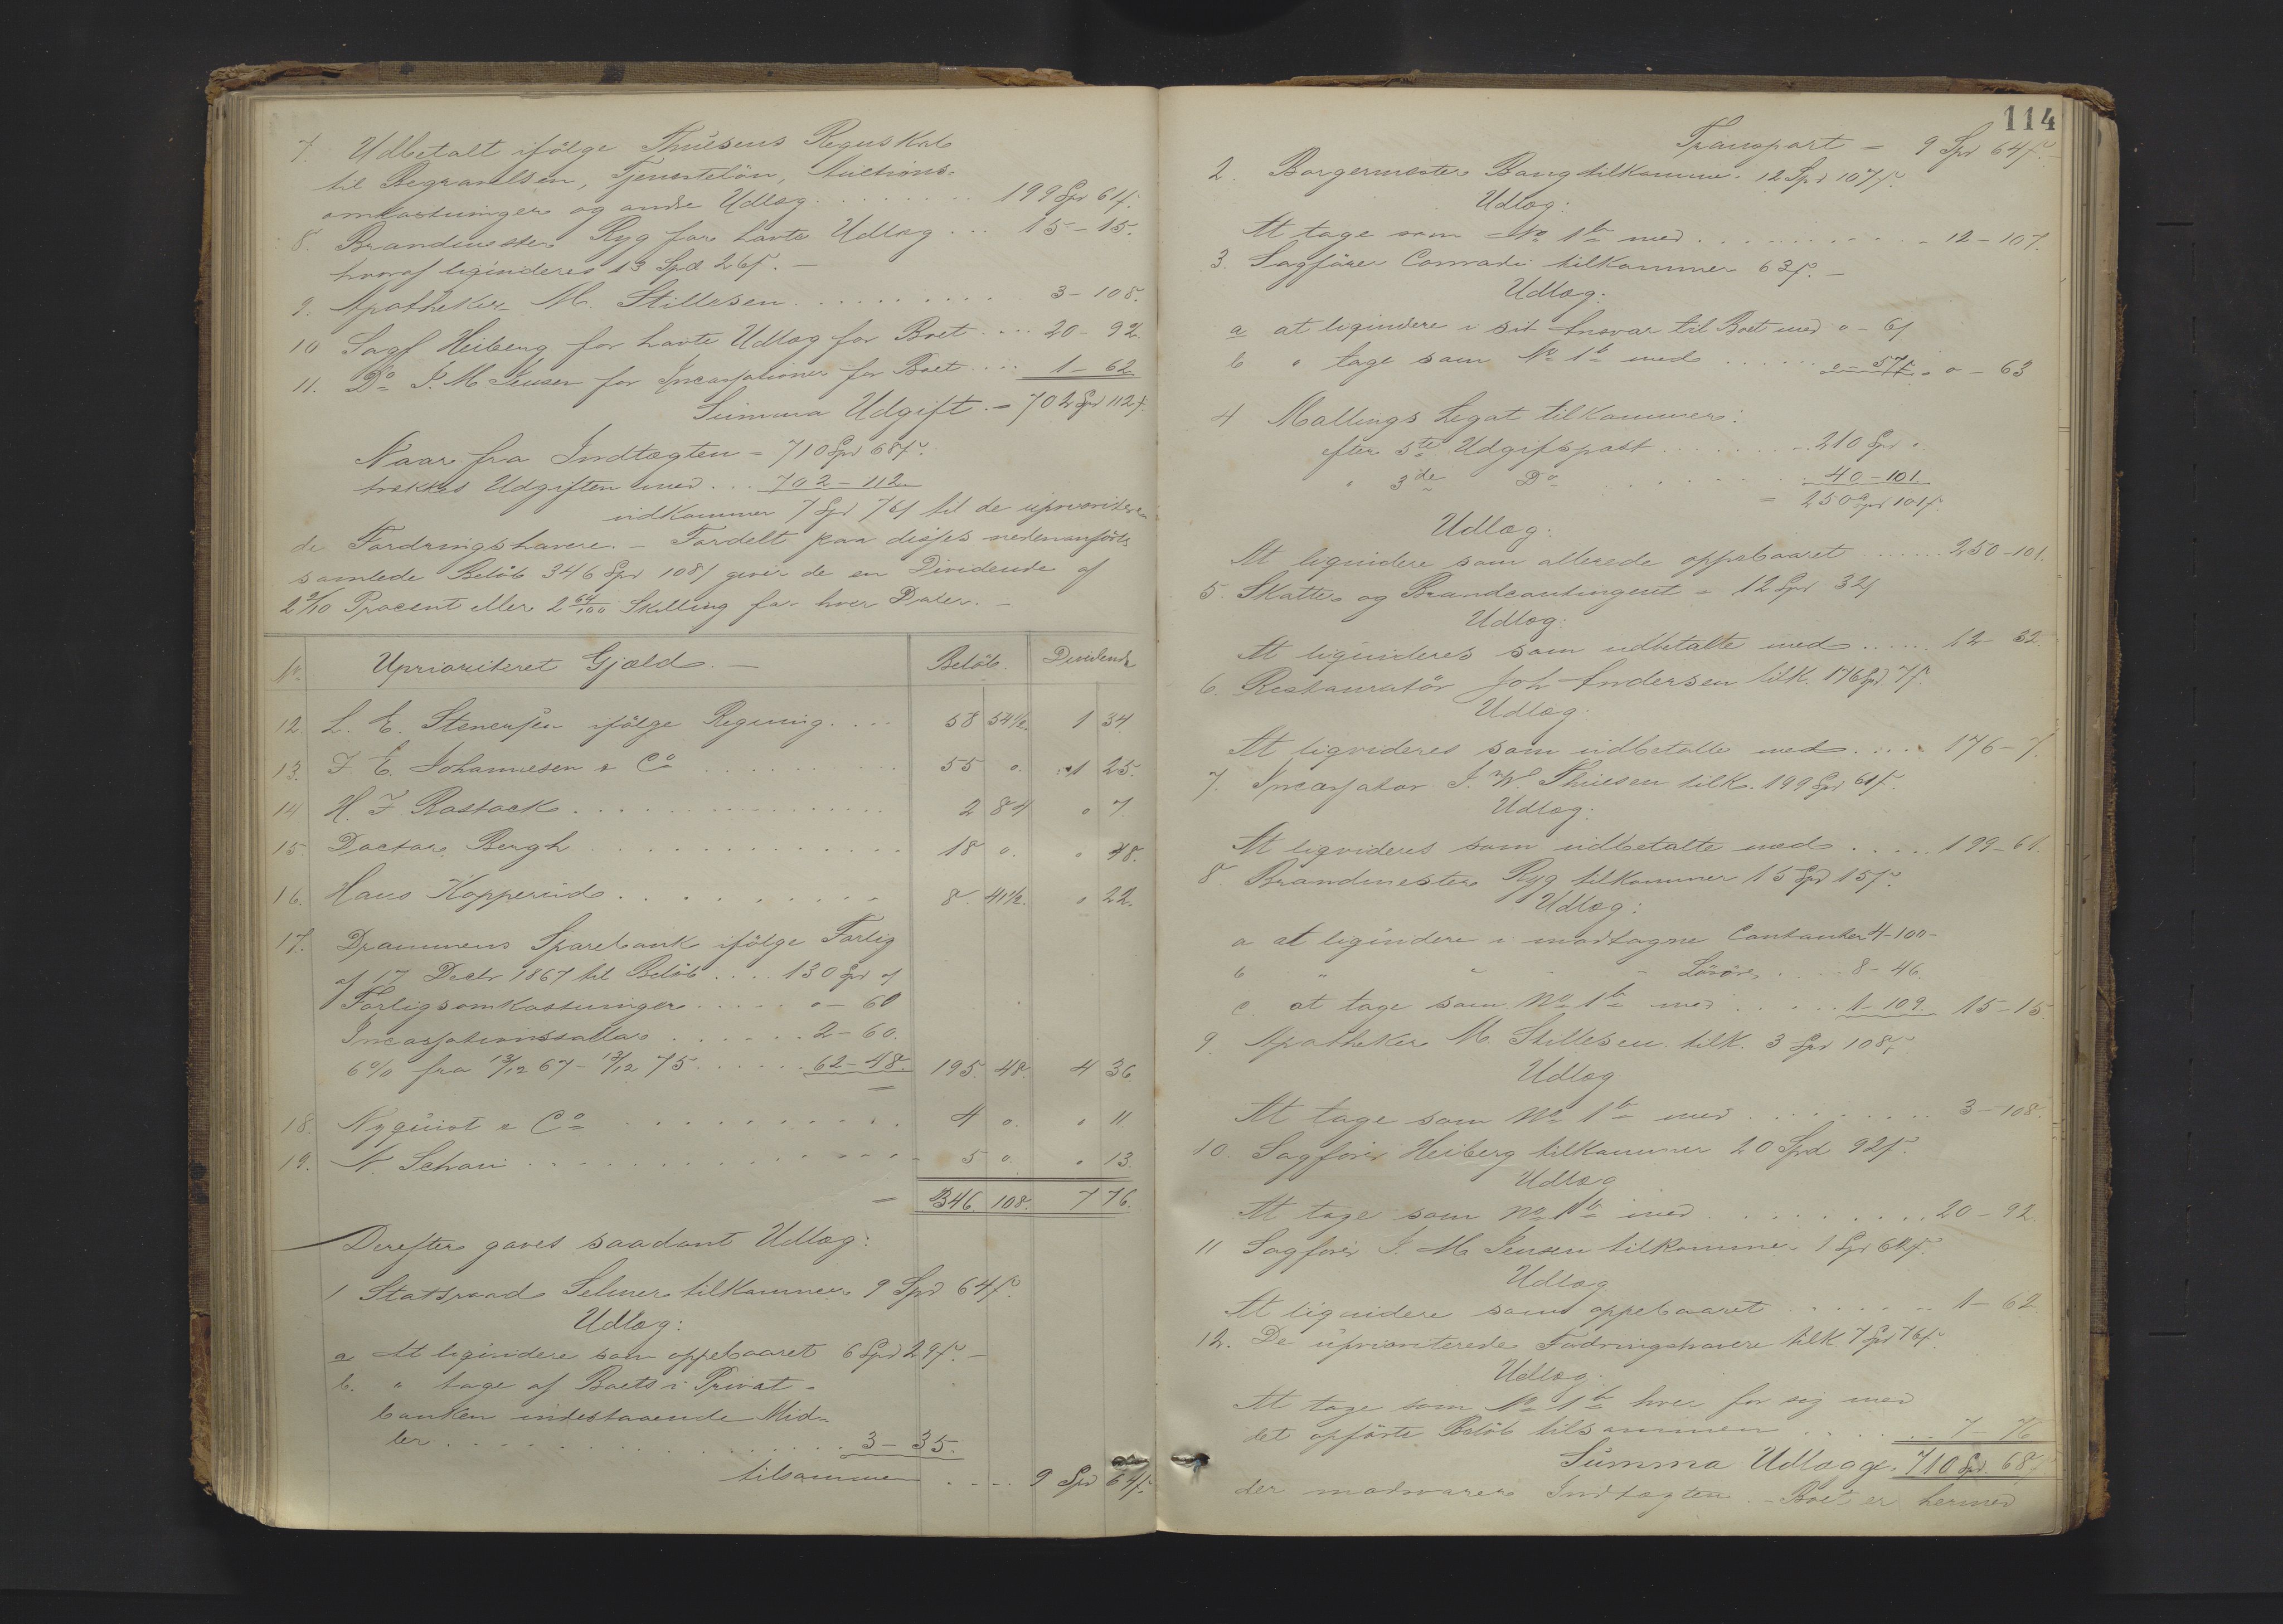 7. Udbetalt ifölge Thuesens Regnskab
til Begravelsen, Tjenesteløn, Auctions-
omkostninger og andre Udlæg . . . . . . . . 199 Spd 61 ſ.
8. Brandmester Ryg for havte Udlæg . . . 15 - 15.
hvoraf ligvideres 13 Spd 26 ſ. —
9. Apotheker M. Stillesen . . . . . . . . . 3 - 108.
10 Sagf Heiberg for havte Udlæg for Boet . . . 20 - 92.
11. Do I. M Jensen for Incassationer for Boet . . . 1 - 62
Summa Udgift. = 702 Spd 112 ſ.
Naar fra Indtægten = 710 Spd 68 ſ.
trækkes Udgiften med . . . 702 - 112
udkommer 7 Spd 76 ſ til de uprioritere-
de Fordringshavere. — Fordelt paa disses nedenanförte
samlede Belöb 346 Spd 108 ſ giver de en Dividende af
2 2/10 Procent eller 2 64/100 Skilling for hver Daler. —
No Uprioriteret Gjæld. — Belöb. Dividende
12. L. E. Stenersen ifölge Regning . . . . 58 54½. 1 34.
13. F. E. Johannesen & Co . . . . . . . 55 o. 1 25.
14 H. F Rostock . . . . . . . . . . . . 2 84 o 7.
15. Doctor Bergh . . . . . . . . . . . . 18 o. o 48.
16. Hans Kopperud . . . . . . . . . . 8. 41½. o 22.
17. Drammens Sparebank ifölge Forlig
af 17 Decbr 1867 til Belöb . . . . 130 Spd o ſ
Forligsomkostninger . . . . . o - 60
Incassationssallær . . . . . . 2 - 60.
6% fra 13/12 67 - 13/12 75 . . . . . . 62 - 48. 195. 48. 4 36
18. Nyquist & Co . . . . . . . . . . 4 o. o 11
19. N. Schou . . . . . . . . . . . . . . 5 o. o 13.
= 346. 108. 7 76.
Derefter gaves saadant Udlæg:
1 Statsraad Selmer tilkommer 9 Spd 64 ſ.
Udlæg:
a At ligvidere som oppebaaret 6 Spd 29 ſ. —
b. " tage af Boets i Privat-
banken indestaaende Mid-
ler . . . . . . . . . . . . . . 3 - 35.
tilsammen . . . . 9 Spd 64 ſ.
114
Transport = 9 Spd 64 ſ. —
2. Borgermester Bang tilkommer 12 Spd 107 ſ.
Udlæg:
At tage som No 1 b med . . . . . . . . . . . 12 - 107.
3. Sagförer Conradi tilkommer 63 ſ. —
Udlæg:
a at ligvidere i sit Ansvar til Boet med o - 6 ſ
b " tage som No 1 b med . . . . . . o - 57 ſ. o - 63
4 Mallings Legat tilkommer:
efter 5te Udgiftspost . . . . . . . 210 Spd "
" 3de Do . . . . . . . . . 40 - 101.
= 250 Spd 101 ſ.
Udlæg:
At ligvidere som allerede oppebaaret . . . . . . 250 - 101.
5. Skatter og Brandcontingent = 12 Spd 32 ſ
Udlæg:
At ligvideres som udbetalte med . . . . . . 12 - 32.
6. Restauratör Joh Andersen tilk. 176 Spd 7 ſ.
Udlæg.
At ligvideres som udbetalte med . . . . . 176 - 7.
7. Incassator I. W. Thuesen tilk. 199 Spd 61 ſ.
Udlæg:
At ligvideres som udbetalte med . . . . . 199 - 61.
8. Brandmester Ryg tilkommer 15 Spd 15 ſ.
Udlæg:
a at ligvidere i modtagne Contanter 4 - 100 -
b " " - - Lösöre . . . . 8 - 46.
c. at tage som No 1 b med . . . . . 1 - 109. 15 - 15.
9. Apotheker M. Stillesen tilk. 3 Spd 108 ſ.
Udlæg
At tage som No 1 b med . . . . . . . . . 3 - 108.
10. Sagförer Heiberg tilkommer 20 Spd 92 ſ.
Udlæg
At tage som No 1 b med . . . . . . . . . . 20 - 92.
11 Sagförer I. M Jensen tilkommer 1 Spd 62 ſ.
Udlæg
At ligvidere som oppebaaret . . . . . . . 1 - 62.
12. De uprioriterede Fodringshavere tilk. 7 Spd 76 ſ.
Udlæg.
At tage som No 1 b hver for sig med
det opförte Belöb tilsammen . . . . . . 7 - 76
Summa Udlæg = 710 Spd. 68 ſ
der modsvarer Indtægten. — Boet er hermed